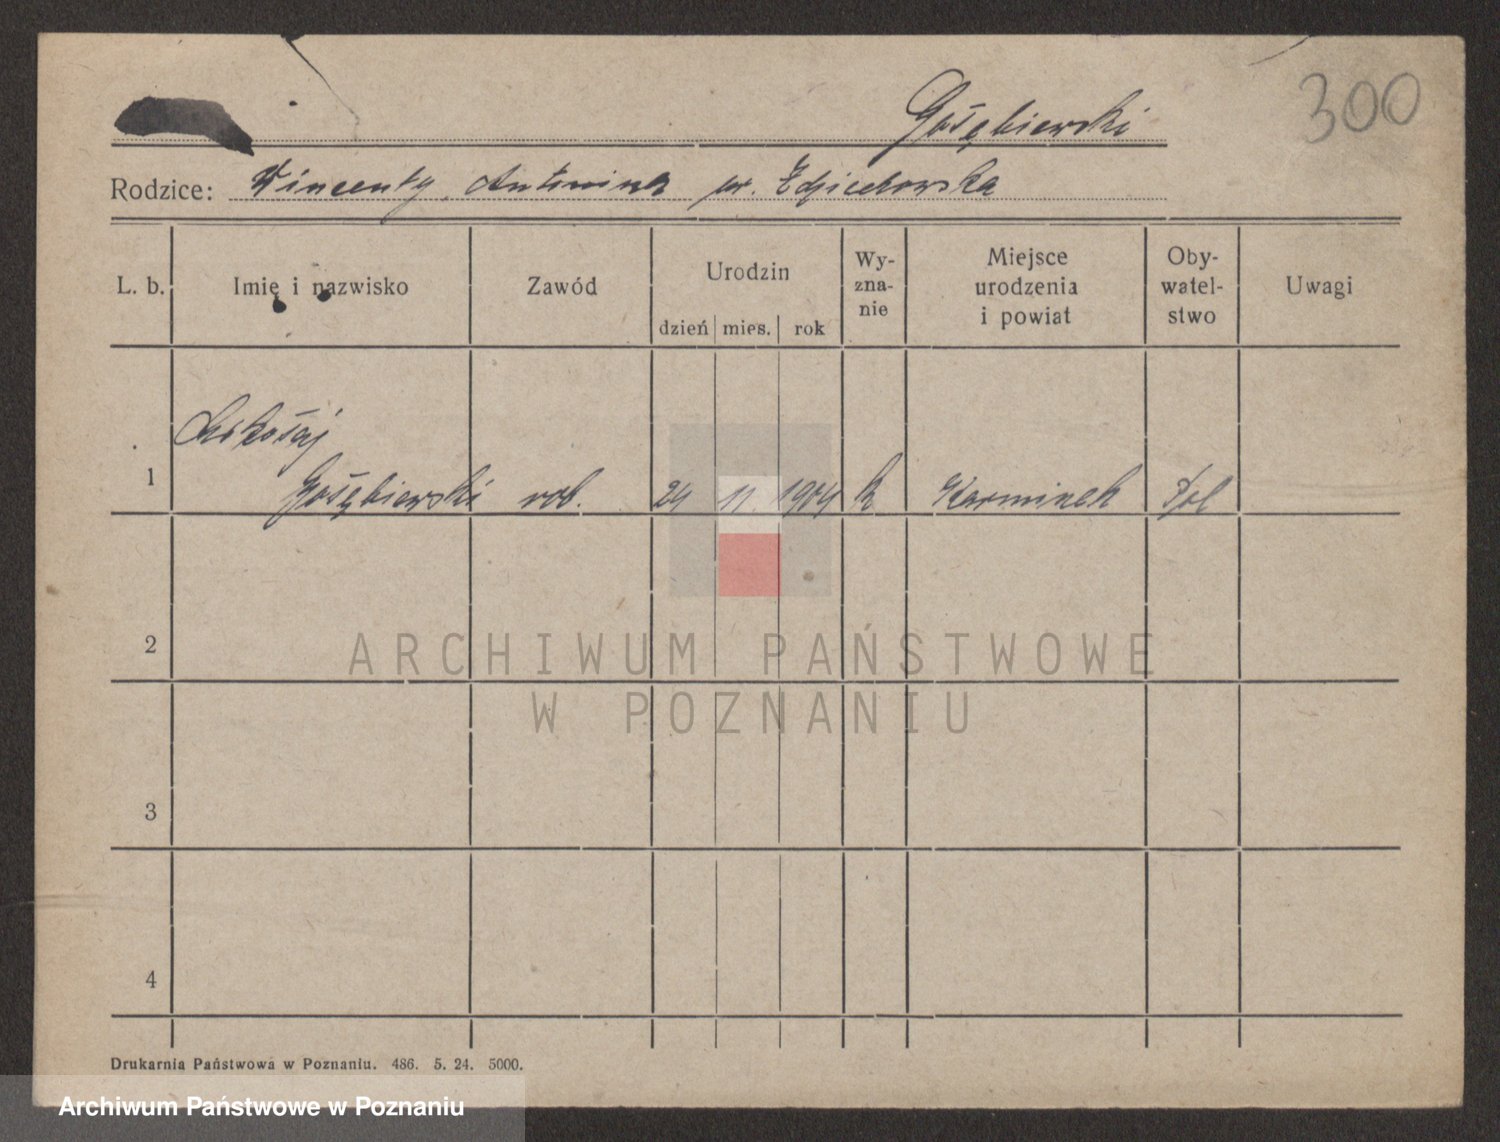 300
Gołębiewski
Rodzice: Wincenty, Antonina
L. b. Imię i nazwisko Zawód Urodzin dzień mies. rok Wy-zna-nie Miejsce urodzenia i powiat Oby-watel-stwo Uwagi
Mikołaj
1 Gołębiewski rob. 24 11. 1904 k Karminek Pol
2
ARCHIWUM PAŃSTWOWE
W POZNANIU
3
4
Drukarnia Państwowa w Poznaniu. 486. 5. 24. 5000.
Archiwum Państwowe w Poznaniu